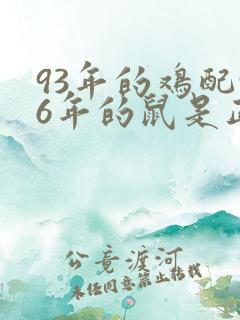 93年的鸡配
6年的鼠是
公竟渡河
未经同意禁止转载